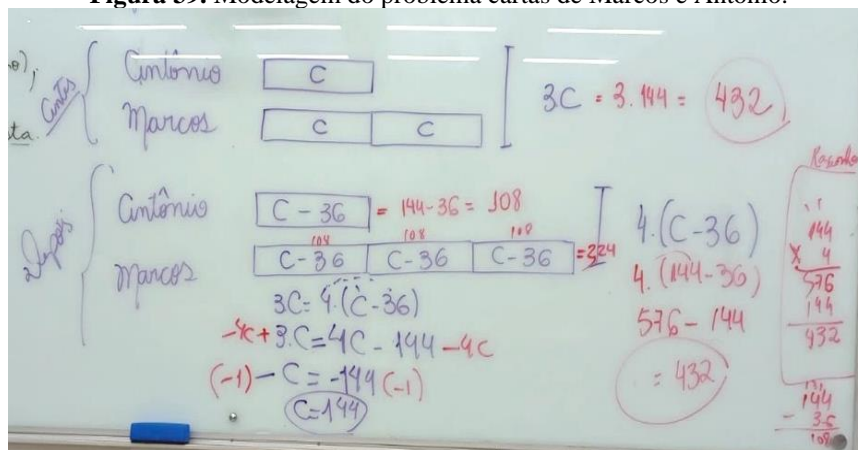 Figura 39. Modelagem do problema cartas de Marcos e Antônio.
o),
ta.
Antes
Antônio C
Marcos C C
3C = 3.144 = 432
Depois
Antônio C - 36 = 144-36 = 108
108 108 108
Marcos C-36 C-36 C-36 =324
3C= 4.(C-36)
-4C+3.C=4C-144-4C
(-1)-C=-144(-1)
C=144
4.(C-36)
4.(144-36)
576-144
= 432
Rascunho
144
X 4
576
144
432
144
- 36
108